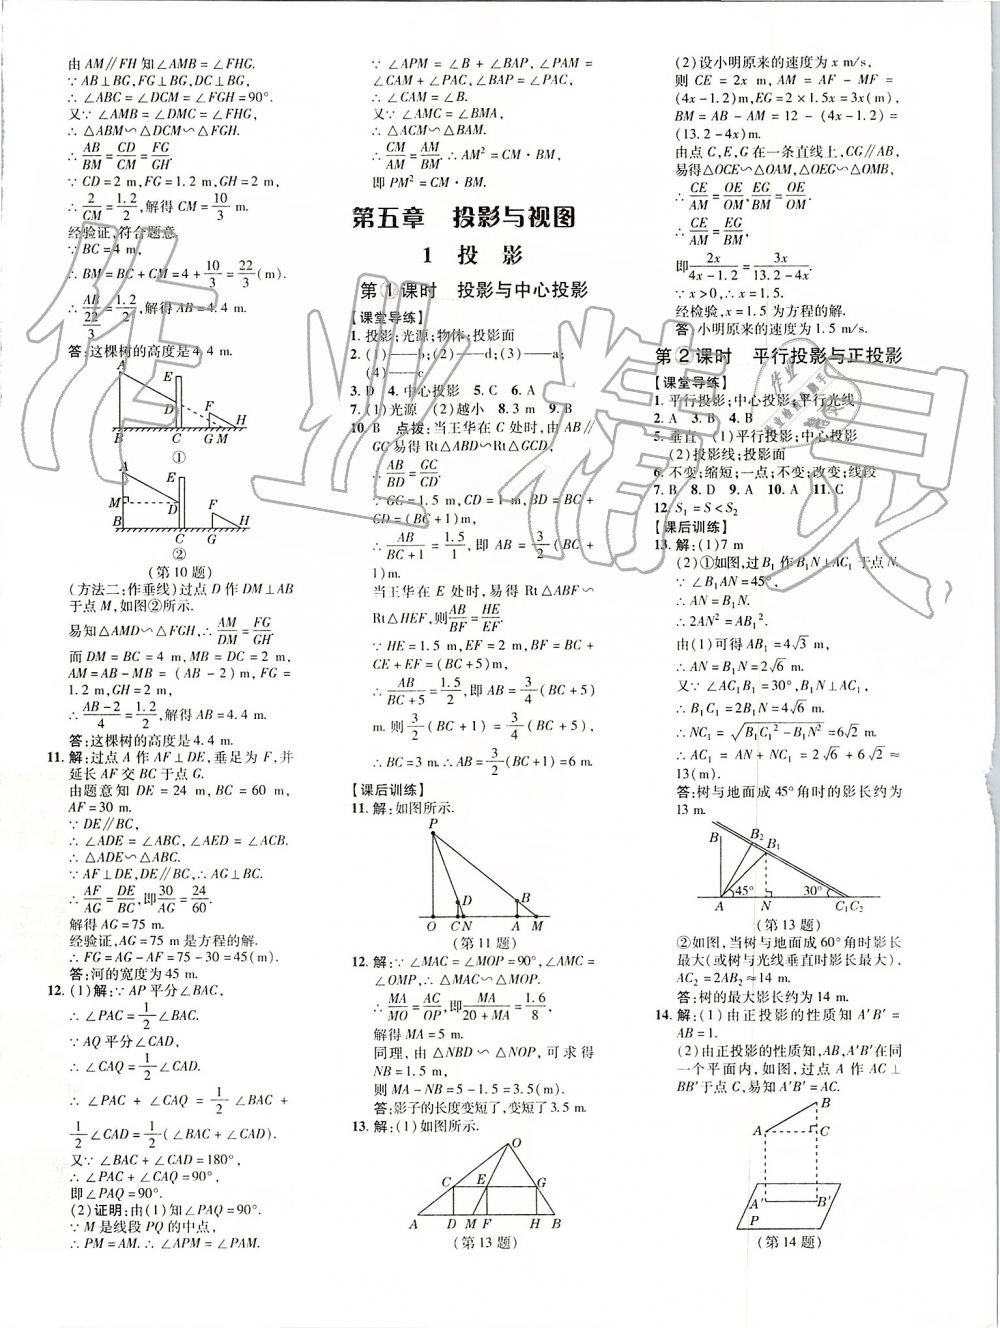 由AM∥FH知∠AMB=∠FHG.
∵AB⊥BG,FG⊥BG,DC⊥BG,
∴∠ABC=∠DCM=∠FGH=90°.
又∵∠AMB=∠DMC=∠FHG,
∴△ABM∽△DCM∽△FGH.
∴AB/BM=CD/CM=FG/GH.
∵CD=2 m,FG=1.2 m,GH=2 m,
∴2/CM=1.2/2,解得CM=10/3 m.
经验证,符合题意.
∵BC=4 m,
∴BM=BC+CM=4+10/3=22/3(m).
∴AB/(22/3)=1.2/2,解得AB=4.4 m.
答:这棵树的高度是4.4 m.
A E D F B C G M H
①
A E M D F H B C G
②
(第10题)
(方法二:作垂线)过点D作DM⊥AB
于点M,如图②所示.
易知△AMD∽△FGH,∴AM/DM=FG/GH.
而DM=BC=4 m,MB=DC=2 m,
AM=AB-MB=(AB-2)m,FG=
1.2 m,GH=2 m,
∴(AB-2)/4=1.2/2,解得AB=4.4 m.
答:这棵树的高度是4.4 m.
11.解:过点A作AF⊥DE,垂足为F,并
延长AF交BC于点G.
由题意知DE=24 m,BC=60 m,
AF=30 m.
∵DE∥BC,
∴∠ADE=∠ABC,∠AED=∠ACB.
∴△ADE∽△ABC.
∵AF⊥DE,DE∥BC,∴AG⊥BC.
∴AF/AG=DE/BC,即30/AG=24/60.
解得AG=75 m.
经验证,AG=75 m是方程的解.
∴FG=AG-AF=75-30=45(m).
答:河的宽度为45 m.
12.(1)解:∵AP平分∠BAC,
∴∠PAC=1/2∠BAC.
∵AQ平分∠CAD,
∴∠CAQ=1/2∠CAD.
∴∠PAC+∠CAQ=1/2∠BAC+
1/2∠CAD=1/2(∠BAC+∠CAD).
又∵∠BAC+∠CAD=180°,
∴∠PAC+∠CAQ=90°.
即∠PAQ=90°.
(2)证明:由(1)知∠PAQ=90°.
∵M是线段PQ的中点,
∴PM=AM.∴∠APM=∠PAM.
∵∠APM=∠B+∠BAP,∠PAM=
∠CAM+∠PAC,∠BAP=∠PAC,
∴∠CAM=∠B.
又∵∠AMC=∠BMA,
∴△ACM∽△BAM.
∴CM/AM=AM/BM.∴AM²=CM·BM,
即PM²=CM·BM.
第五章 投影与视图
1 投影
第①课时 投影与中心投影
【课堂导练】
1.投影;光源;物体;投影面
2.(1)——b;(2)——d;(3)——a;
(4)——c
3.D 4.中心投影 5.C 6.A
7.(1)光源 (2)越小 8.3 m 9.B
10.B 点拨:当王华在C处时,由AB∥
GC易得Rt△ABD∽Rt△GCD,
∴AB/BD=GC/CD.
∵GC=1.5 m,CD=1 m,BD=BC+
CD=(BC+1)m,
∴AB/(BC+1)=1.5/1,即AB=3/2(BC+
1)m.
当王华在E处时,易得Rt△ABF∽
Rt△HEF,则AB/BF=HE/EF.
∵HE=1.5 m,EF=2 m,BF=BC+
CE+EF=(BC+5)m,
∴AB/(BC+5)=1.5/2,即AB=3/4(BC+5)
m.则3/2(BC+1)=3/4(BC+5),
∴BC=3 m.∴AB=3/2(BC+1)=6 m.
【课后训练】
11.解:如图所示.
P D B O C N A M
(第11题)
12.解:∵∠MAC=∠MOP=90°,∠AMC=
∠OMP,∴△MAC∽△MOP.
∴MA/MO=AC/OP,即MA/(20+MA)=1.6/8,
解得MA=5 m.
同理,由△NBD∽△NOP,可求得
NB=1.5 m,
则MA-NB=5-1.5=3.5(m).
答:影子的长度变短了,变短了3.5 m.
13.解:(1)如图所示.
O C E G A D M F H B
(第13题)
(2)设小明原来的速度为x m/s,
则CE=2x m,AM=AF-MF=
(4x-1.2)m,EG=2×1.5x=3x(m),
BM=AB-AM=12-(4x-1.2)=
(13.2-4x)m.
由点C,E,G在一条直线上,CG∥AB,
易得△OCE∽△OAM,△OEG∽△OMB,
∴CE/AM=OE/OM,EG/BM=OE/OM.
∴CE/AM=EG/BM.
即2x/(4x-1.2)=3x/(13.2-4x).
∵x>0,∴x=1.5.
经检验,x=1.5为方程的解.
答:小明原来的速度为1.5 m/s.
第②课时 平行投影与正投影
【课堂导练】
1.平行投影;中心投影;平行光线
2.A 3.B 4.B
5.垂直 (1)平行投影;中心投影
(2)投影线;投影面
6.不变;缩短;一点;不变;改变;线段
7.B 8.D 9.A 10.A 11.C
12.S₁=S<S₂
【课后训练】
13.解:(1)7 m
(2)①如图,过B₁作B₁N⊥AC₁于点N.
∵∠B₁AN=45°,
∴AN=B₁N.
∴2AN²=AB₁².
由(1)可得AB₁=4√3 m,
∴AN=B₁N=2√6 m.
又∵∠AC₁B₁=30°,B₁N⊥AC₁,
∴B₁C₁=2B₁N=4√6 m.
∴NC₁=√(B₁C₁²-B₁N²)=6√2 m.
∴AC₁=AN+NC₁=2√6+6√2≈
13(m).
答:树与地面成45°角时的影长约为
13 m.
B B₂ B₁ 45° 30° A N C₁C₂
(第13题)
②如图,当树与地面成60°角时影长
最大(或树与光线垂直时影长最大),
AC₂=2AB₂≈14 m.
答:树的最大影长约为14 m.
14.解:(1)由正投影的性质知A′B′=
AB=1.
(2)由正投影的性质知,AB,A′B′在同
一个平面内,如图,过点A作AC⊥
BB′于点C,易知A′B′=AC.
B A C A′ B′ P
(第14题)
作业精灵